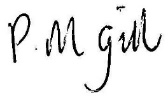 P. M gill